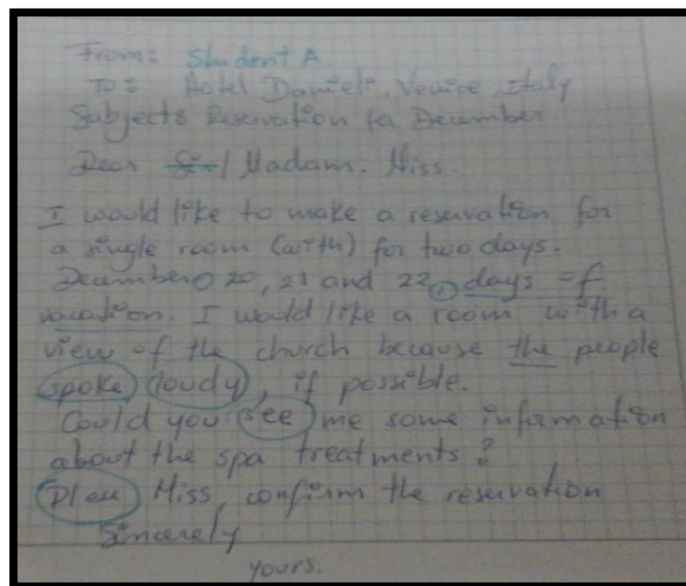 From: Student A.
To: Hotel Danieli, Venice, Italy
Subject: Reservation for December.
Dear Sir / Madam. Miss.
I would like to make a reservation for
a single room (with) for two days.
December 20, 21 and 22, days of
vacation. I would like a room with a
view of the church because the people
spoke loudy, if possible.
Could you see me some information
about the spa treatments?
Miss, confirm the reservation
Sincerely
yours.